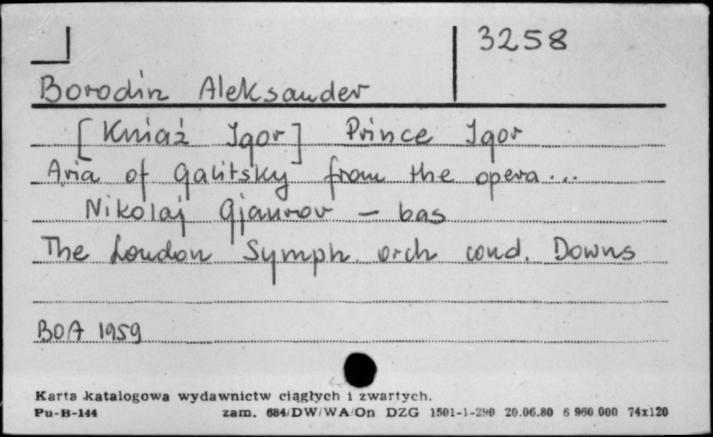 3258
Borodin Aleksander
[Kniaź Igor] Prince Igor
Aria of Galitsky from the opera...
Nikolaj Gjaurov – bas
The London Symph. orch cond. Downs
BOA 1959
Karta katalogowa wydawnictw ciągłych i zwartych.
Pu-B-144 zam. 684/DW/WA/On DZG 1501-1-290 20.06.80 6 960 000 74x120